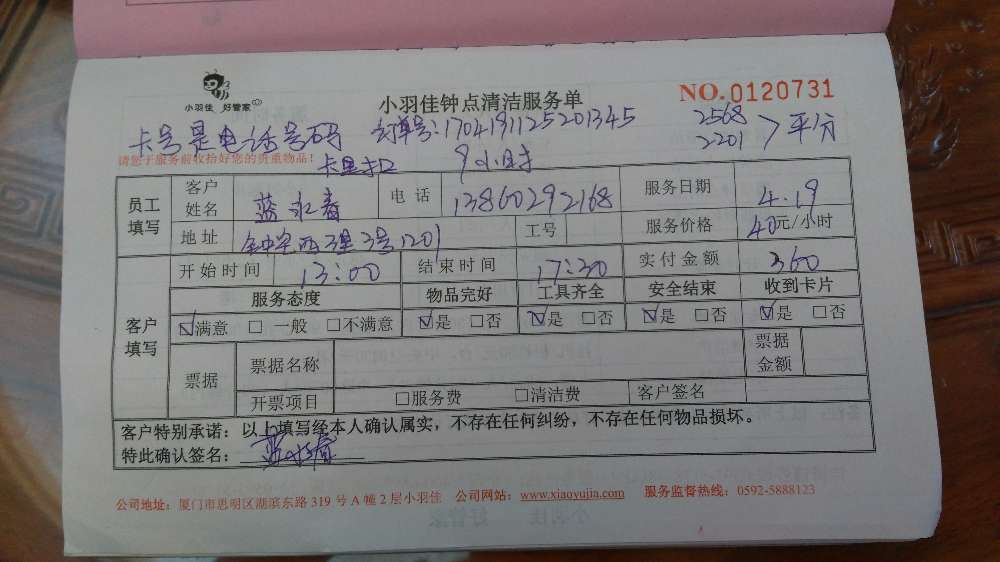 小羽佳 好管家
小羽佳钟点清洁服务单
NO.0120731
卡号是电话号码 订单号:1704191125201345 2568
2201 > 平分
请您于服务前收拾好您的贵重物品!
卡里扣 9小时
员工填写 客户姓名 蓝永春 电话 13860292168 服务日期 4.19
地址 西3里3号1201 工号 服务价格 40元/小时
客户填写 开始时间 13:00 结束时间 17:30 实付金额 360
服务态度 物品完好 工具齐全 安全结束 收到卡片
☑满意 □ 一般 □不满意 ☑是 □否 ☑是 □否 ☑是 □否 ☑是 □否
票据 票据名称 票据金额
开票项目 □服务费 □清洁费 客户签名
客户特别承诺：以上填写经本人确认属实，不存在任何纠纷，不存在任何物品损坏。
特此确认签名： 蓝永春
公司地址：厦门市思明区湖滨东路 319 号 A 幢 2 层小羽佳 公司网站：www.xiaoyujia.com 服务监督热线：0592-5888123